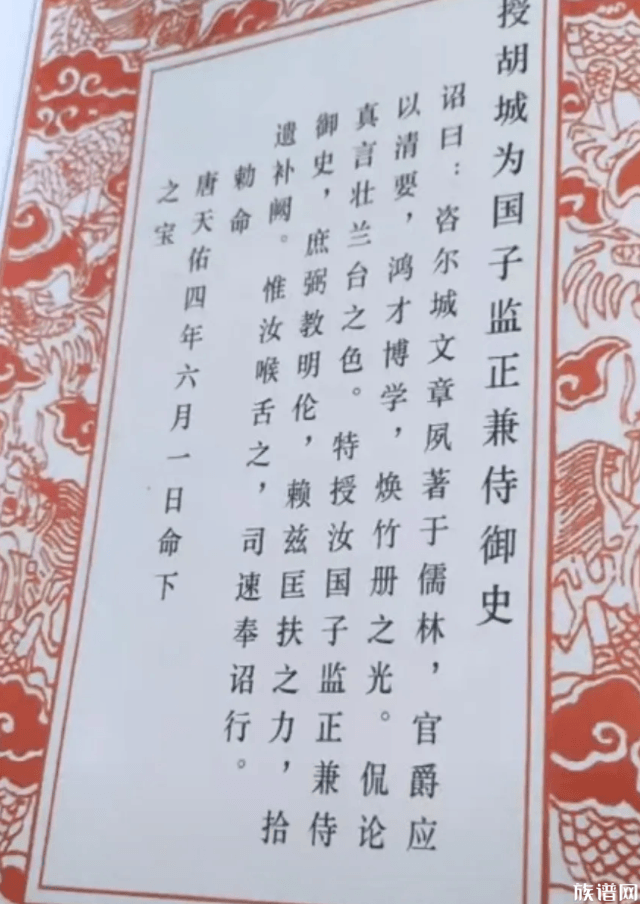 授胡城为国子监正兼侍御史
诏曰：咨尔城文章夙著于儒林，官爵应
以清要，鸿才博学，焕竹册之光。侃论
真言壮兰台之色。特授汝国子监正兼侍
御史，庶弼教明伦，赖兹匡扶之力，拾
遗补阙。惟汝喉舌之，司速奉诏行。
勅命
唐天佑四年六月一日命下
之宝
族谱网